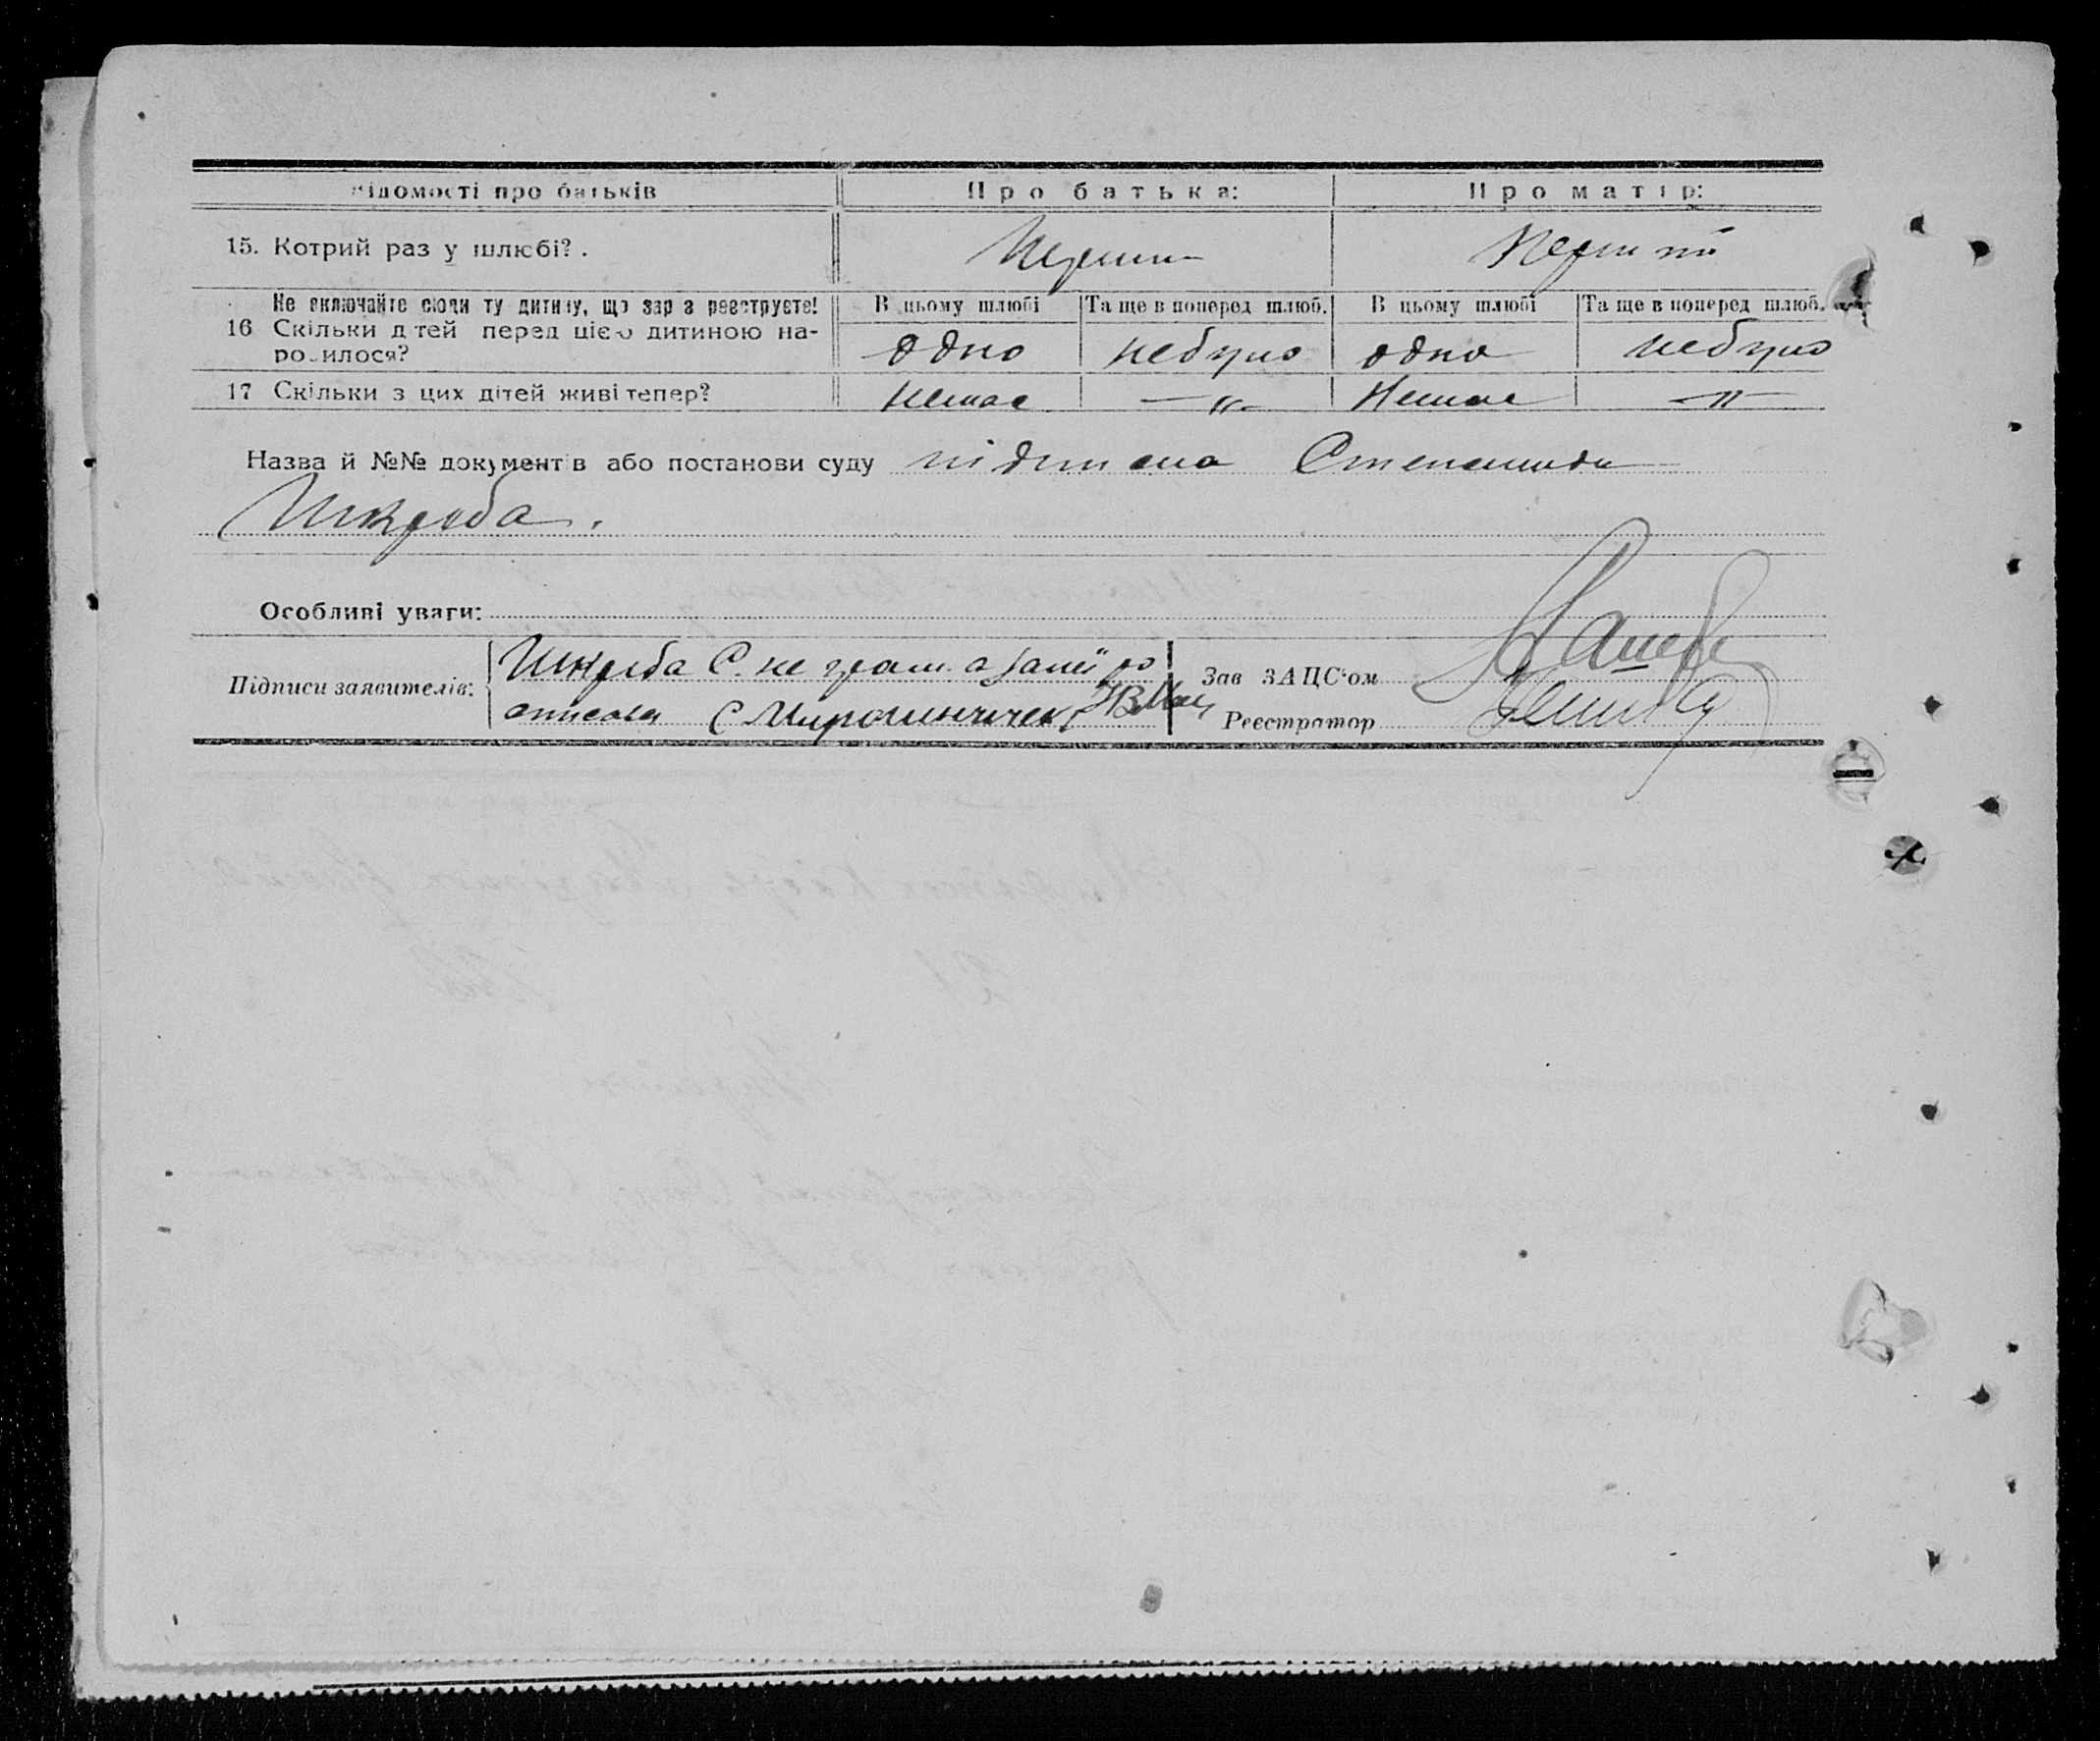 Відомості про батьків Про батька: Про матір:
15. Котрий раз у шлюбі? . Перший Перший
Не включайте сюди ту дитину, що зараз реєструєте! В цьому шлюбі Та ще в поперед шлюб. В цьому шлюбі Та ще в поперед шлюб.
16 Скільки дітей перед цією дитиною на-
родилося? одно небуло одно небуло
17 Скільки з цих дітей живі тепер? Немає —„— Немає —„—
Назва й №№ документів або постанови суду Степанида
Шкреба.
Особливі уваги:
Підписи заявителів: Шкреба С. не грам. а за неї
Зав ЗАЦС'ом
С Мирошниченк
Реєстратор